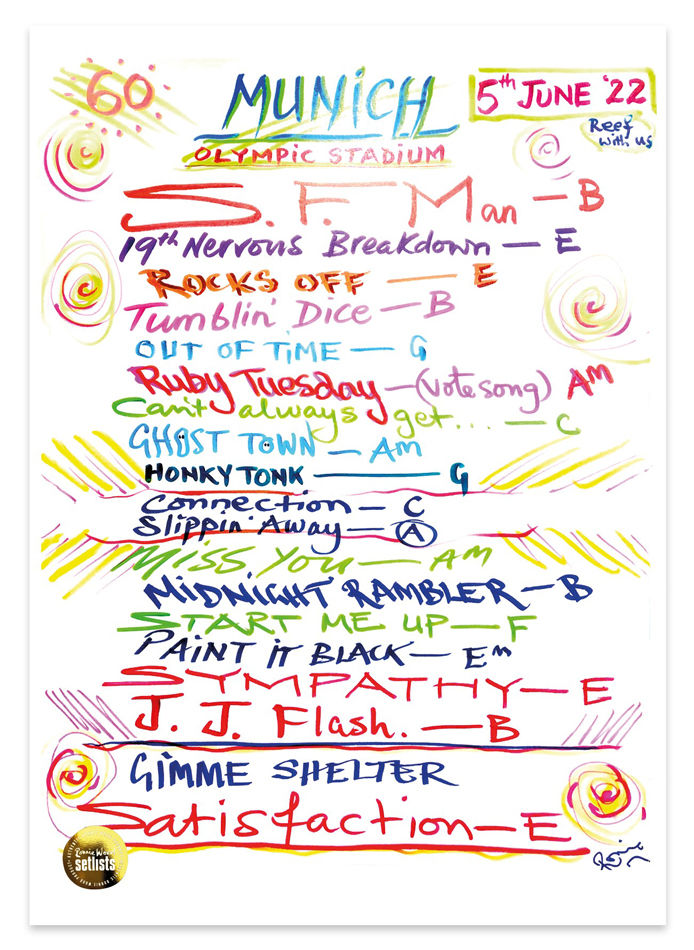 60
MUNiCH
5th JUNE '22
Reef
with us
OLYMPiC STADiUM
S. F. Man — B
19th Nervous Breakdown — E
ROCKS OFF — E
Tumblin' Dice — B
OUT OF TiME — G
Ruby Tuesday — (Vote song) Am
Can't always get... — C
GHOST TOWN — Am
HONKY TONK — G
Connection — C
Slippin' Away — A
Miss You — AM
MiDNiGHT RAMBLER — B
START ME UP — F
PAiNT iT BLACK — Em
SYMPATHY — E
J. J. Flash. — B
GiMME SHELTER
Satisfaction — E
Ronnie Wood
setlists